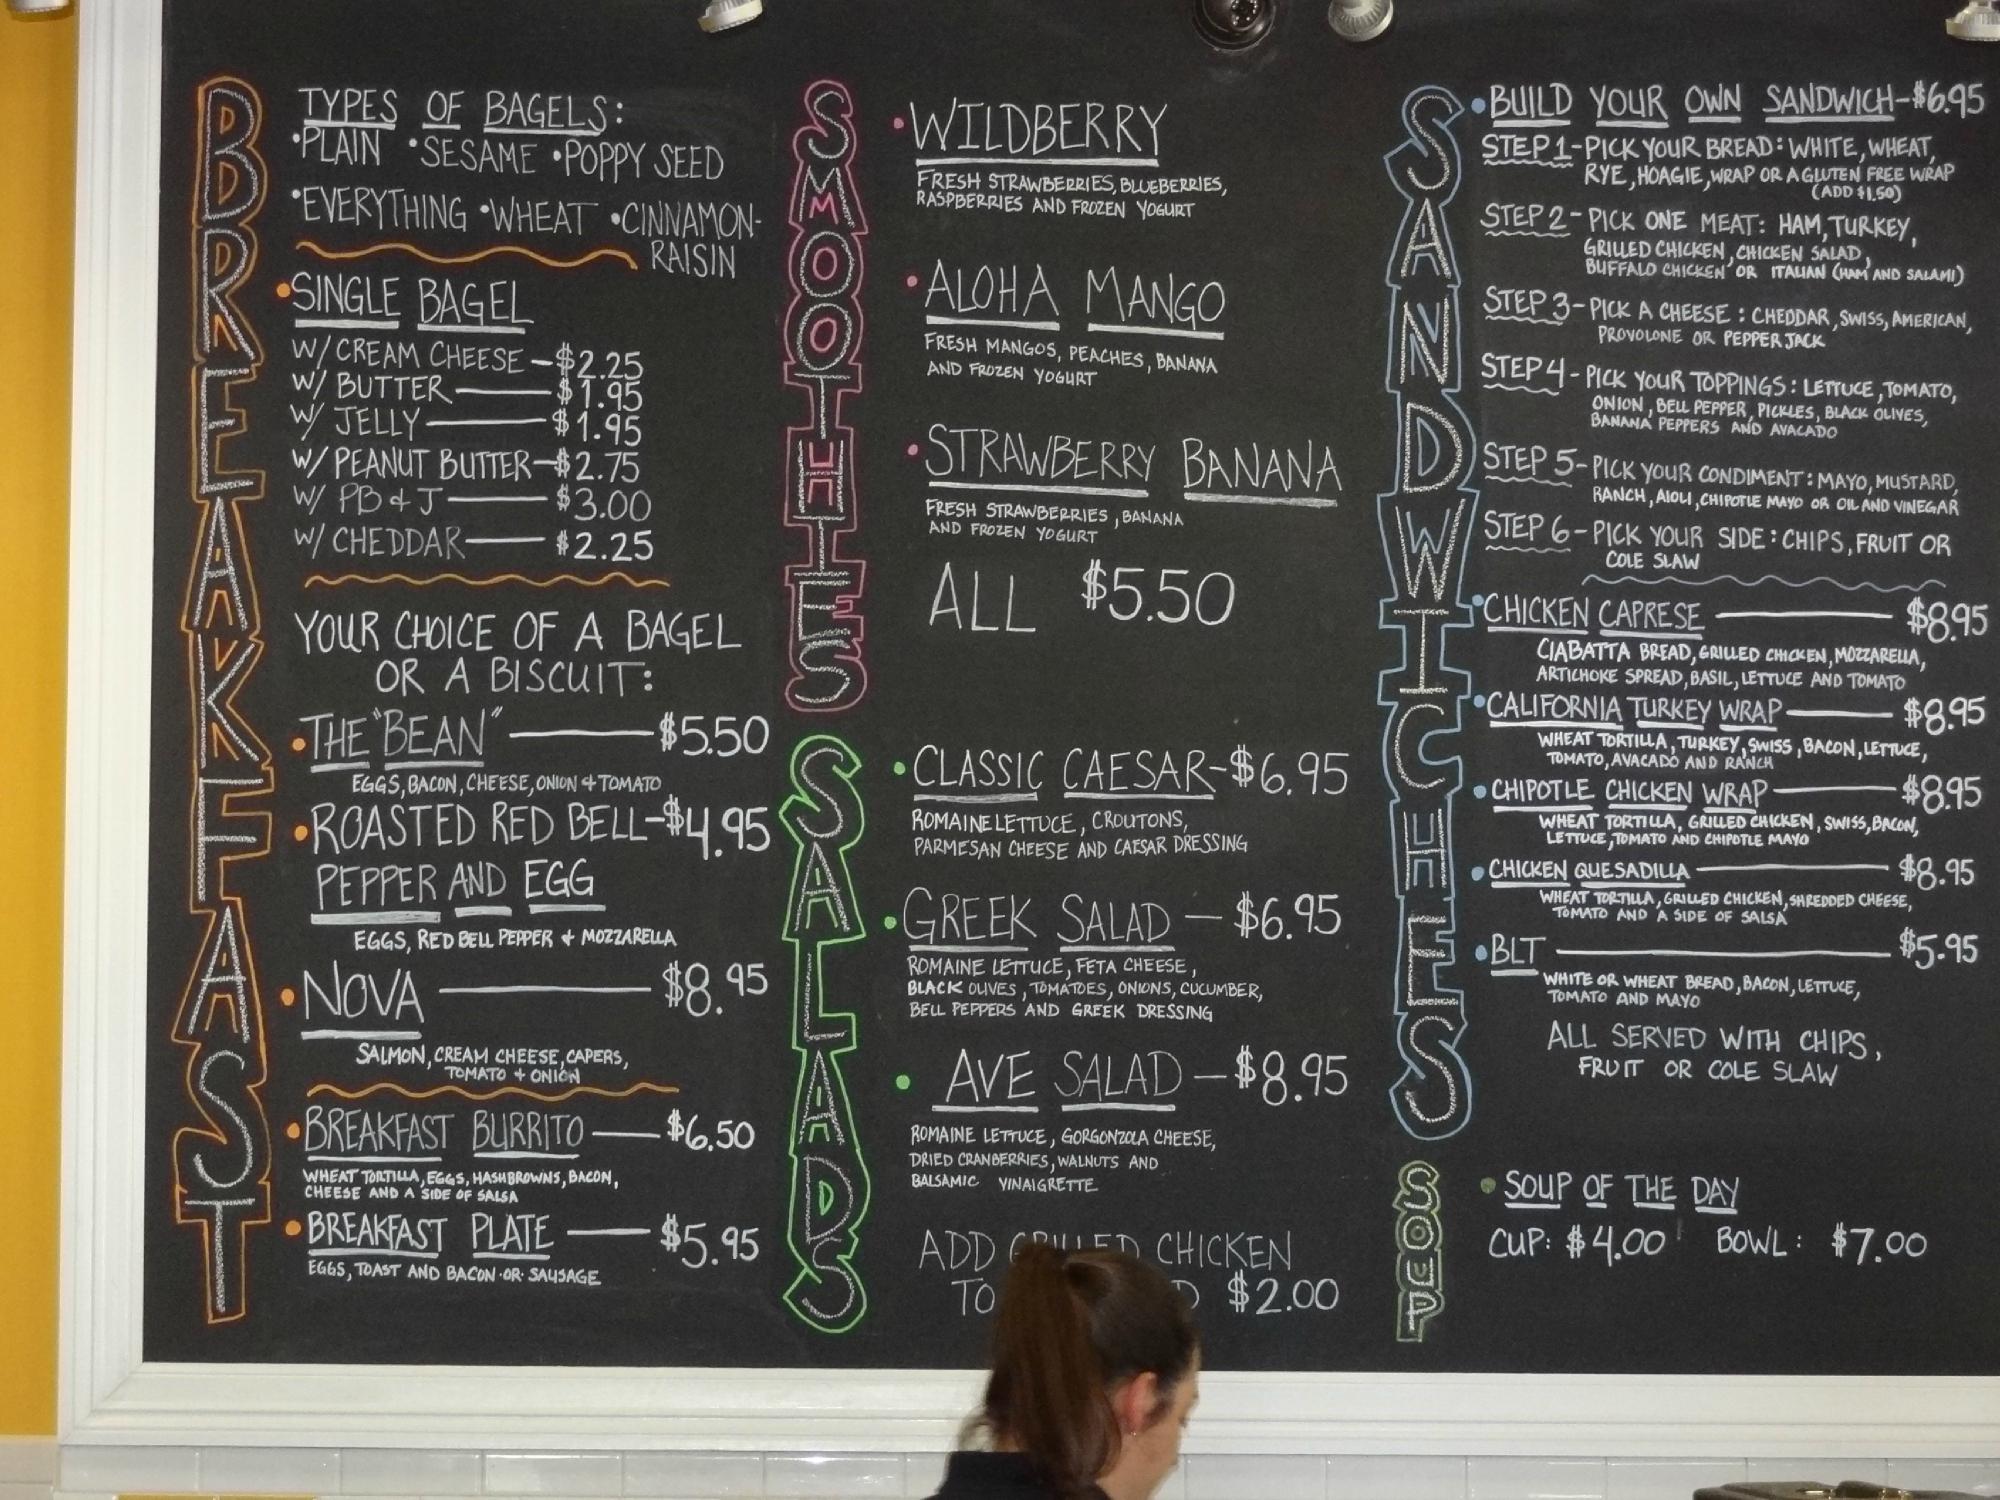 BREAKFAST
TYPES OF BAGELS:
•PLAIN •SESAME •POPPY SEED
•EVERYTHING •WHEAT •CINNAMON-
RAISIN
•SINGLE BAGEL
W/ CREAM CHEESE — $2.25
W/ BUTTER — $1.95
W/ JELLY — $1.95
W/ PEANUT BUTTER — $2.75
W/ PB & J — $3.00
W/ CHEDDAR — $2.25
YOUR CHOICE OF A BAGEL
OR A BISCUIT:
•THE "BEAN" — $5.50
EGGS, BACON, CHEESE, ONION + TOMATO
•ROASTED RED BELL — $4.95
PEPPER AND EGG
EGGS, RED BELL PEPPER + MOZZARELLA
•NOVA — $8.95
SALMON, CREAM CHEESE, CAPERS,
TOMATO + ONION
•BREAKFAST BURRITO — $6.50
WHEAT TORTILLA, EGGS, HASHBROWNS, BACON,
CHEESE AND A SIDE OF SALSA
•BREAKFAST PLATE — $5.95
EGGS, TOAST AND BACON·OR·SAUSAGE
SMOOTHIES
•WILDBERRY
FRESH STRAWBERRIES, BLUEBERRIES,
RASPBERRIES AND FROZEN YOGURT
•ALOHA MANGO
FRESH MANGOS, PEACHES, BANANA
AND FROZEN YOGURT
•STRAWBERRY BANANA
FRESH STRAWBERRIES, BANANA
AND FROZEN YOGURT
ALL $5.50
SALADS
•CLASSIC CAESAR - $6.95
ROMAINE LETTUCE, CROUTONS,
PARMESAN CHEESE AND CAESAR DRESSING
•GREEK SALAD — $6.95
ROMAINE LETTUCE, FETA CHEESE,
BLACK OLIVES, TOMATOES, ONIONS, CUCUMBER,
BELL PEPPERS AND GREEK DRESSING
•AVE SALAD — $8.95
ROMAINE LETTUCE, GORGONZOLA CHEESE,
DRIED CRANBERRIES, WALNUTS AND
BALSAMIC VINAIGRETTE
ADD GRILLED CHICKEN
TO $2.00
SANDWICHES
•BUILD YOUR OWN SANDWICH - $6.95
STEP 1 - PICK YOUR BREAD: WHITE, WHEAT,
RYE, HOAGIE, WRAP OR A GLUTEN FREE WRAP
(ADD $1.50)
STEP 2 - PICK ONE MEAT: HAM, TURKEY,
GRILLED CHICKEN, CHICKEN SALAD,
BUFFALO CHICKEN OR ITALIAN (HAM AND SALAMI)
STEP 3 - PICK A CHEESE: CHEDDAR, SWISS, AMERICAN,
PROVOLONE OR PEPPER JACK
STEP 4 - PICK YOUR TOPPINGS: LETTUCE, TOMATO,
ONION, BELL PEPPER, PICKLES, BLACK OLIVES,
BANANA PEPPERS AND AVACADO
STEP 5 - PICK YOUR CONDIMENT: MAYO, MUSTARD,
RANCH, AIOLI, CHIPOTLE MAYO OR OIL AND VINEGAR
STEP 6 - PICK YOUR SIDE: CHIPS, FRUIT OR
COLE SLAW
•CHICKEN CAPRESE — $8.95
CIABATTA BREAD, GRILLED CHICKEN, MOZZARELLA,
ARTICHOKE SPREAD, BASIL, LETTUCE AND TOMATO
•CALIFORNIA TURKEY WRAP — $8.95
WHEAT TORTILLA, TURKEY, SWISS, BACON, LETTUCE,
TOMATO, AVACADO AND RANCH
•CHIPOTLE CHICKEN WRAP — $8.95
WHEAT TORTILLA, GRILLED CHICKEN, SWISS, BACON,
LETTUCE, TOMATO AND CHIPOTLE MAYO
•CHICKEN QUESADILLA — $8.95
WHEAT TORTILLA, GRILLED CHICKEN, SHREDDED CHEESE,
TOMATO AND A SIDE OF SALSA
•BLT — $5.95
WHITE OR WHEAT BREAD, BACON, LETTUCE,
TOMATO AND MAYO
ALL SERVED WITH CHIPS,
FRUIT OR COLE SLAW
SOUP
•SOUP OF THE DAY
CUP: $4.00 BOWL: $7.00